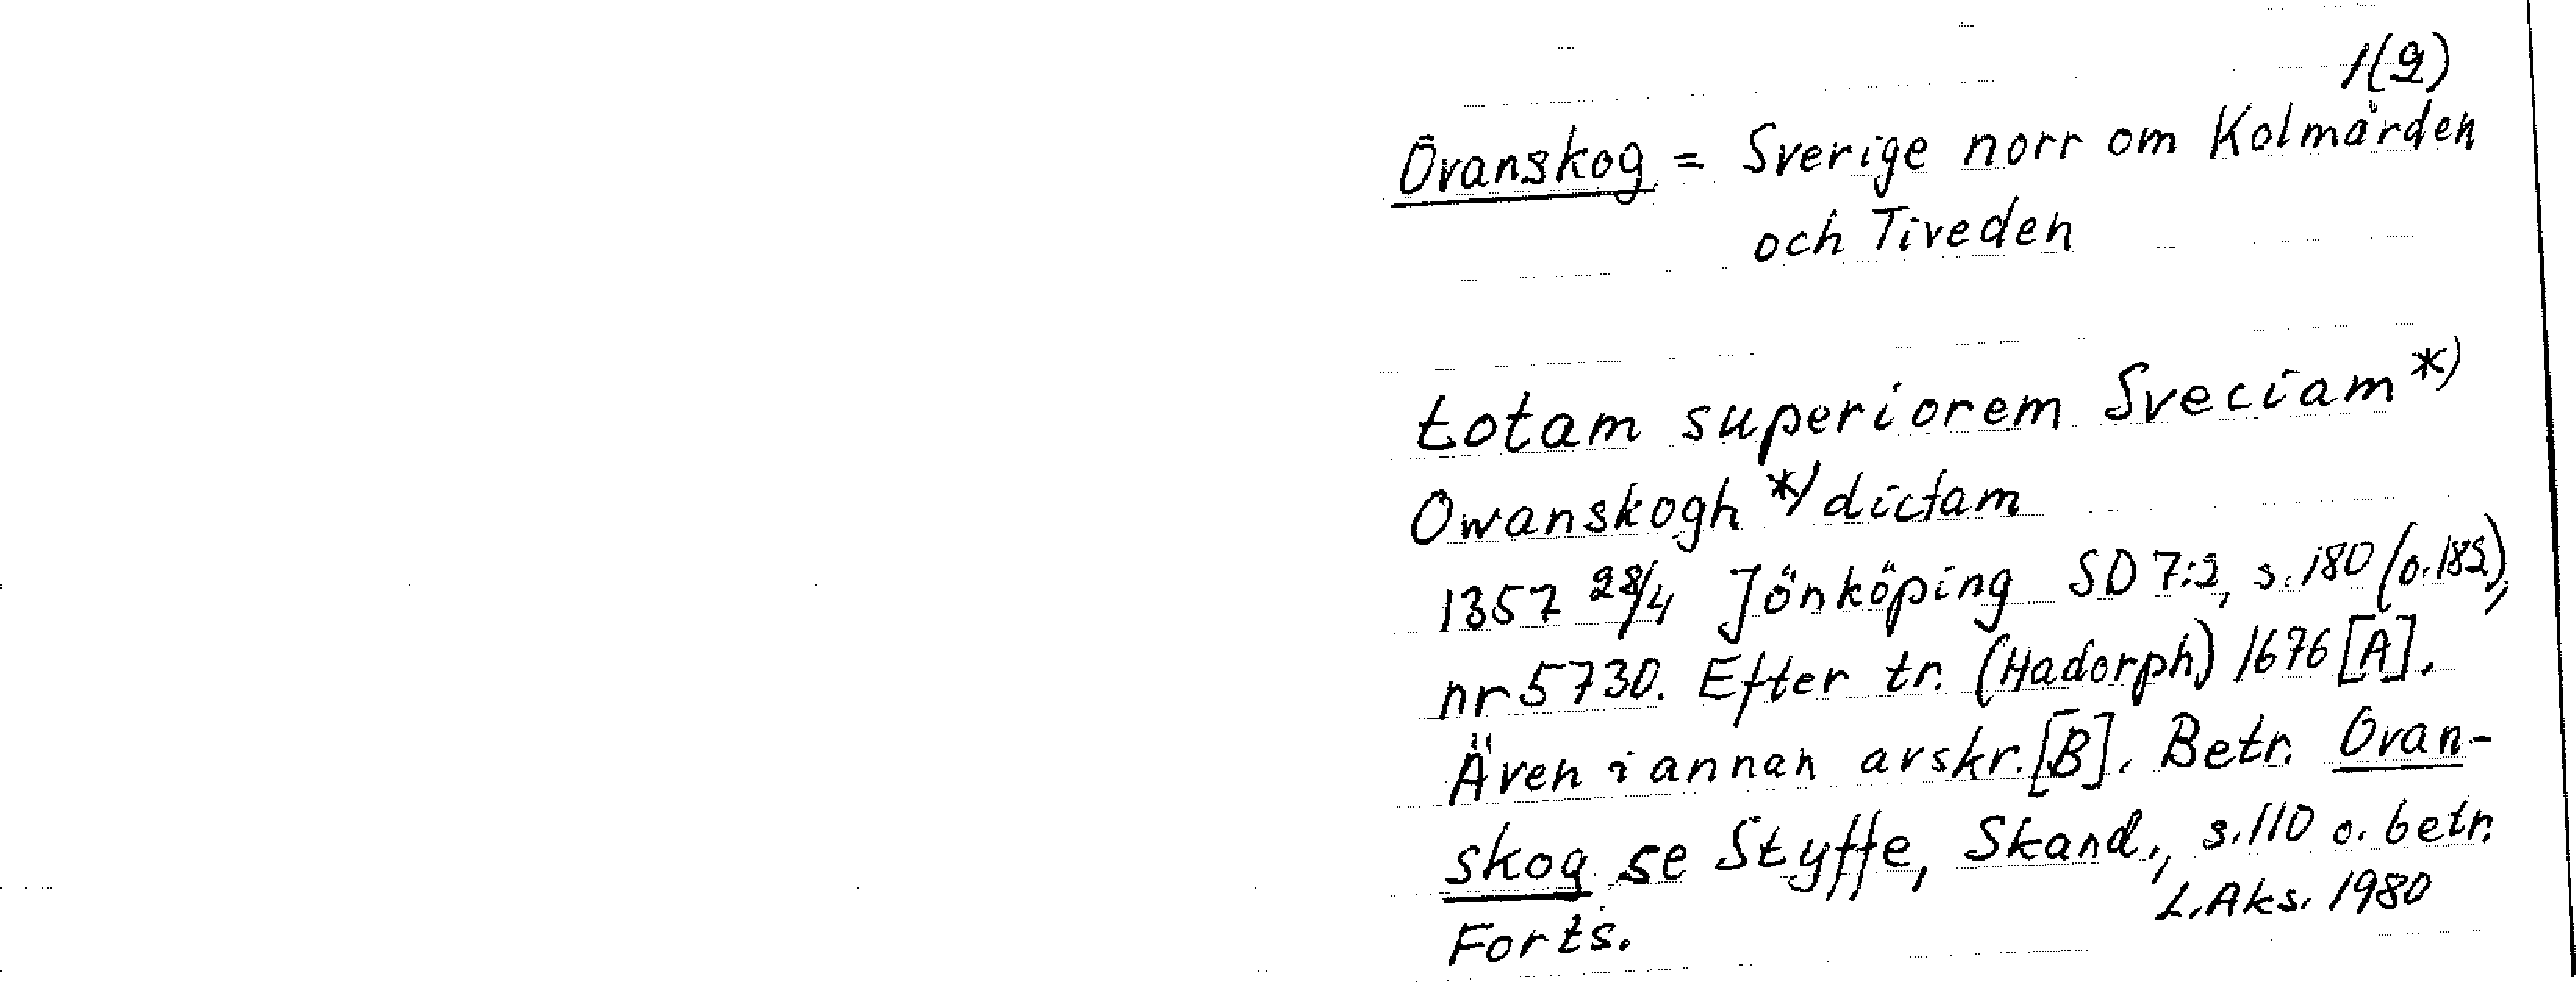 1(2)
Ovanskog = Sverige norr om Kolmården
och Tiveden
totam superiorem Sveciam*)
Owanskogh*) dictam
1357 28/4 Jönköping SD 7:2, s. 180 (o. 182),
nr 5730. Efter tr. (Hadorph) 1676 [A].
Även i annan avskr. [B]. Betr. Ovan-
skog se Styffe, Skand., s. 110 o. betr.
L. Aks. 1980
Forts.